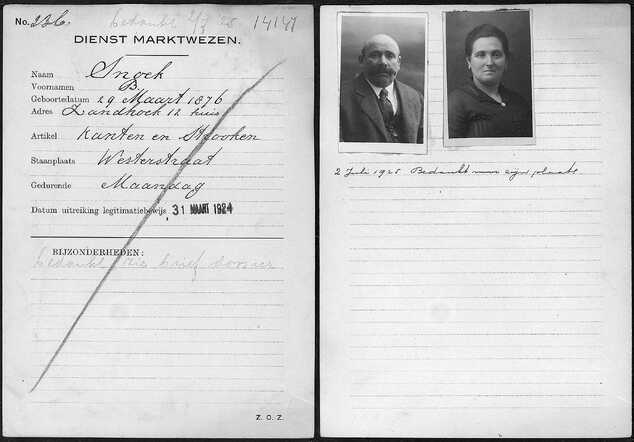 No. 236. bedankt 2/7 25 14147
DIENST MARKTWEZEN.
Naam Snoek
Voornamen B.
Geboortedatum 29 Maart 1876
Adres Zandhoek 12 huis
Artikel Kanten en Strooken
Staanplaats Westerstraat
Gedurende Maandag
Datum uitreiking legitimatiebewijs 31 MAART 1924
BIJZONDERHEDEN:
bedankt zie brief dossier
Z. O. Z.
2 Juli 1925 Bedankt voor zijn plaats